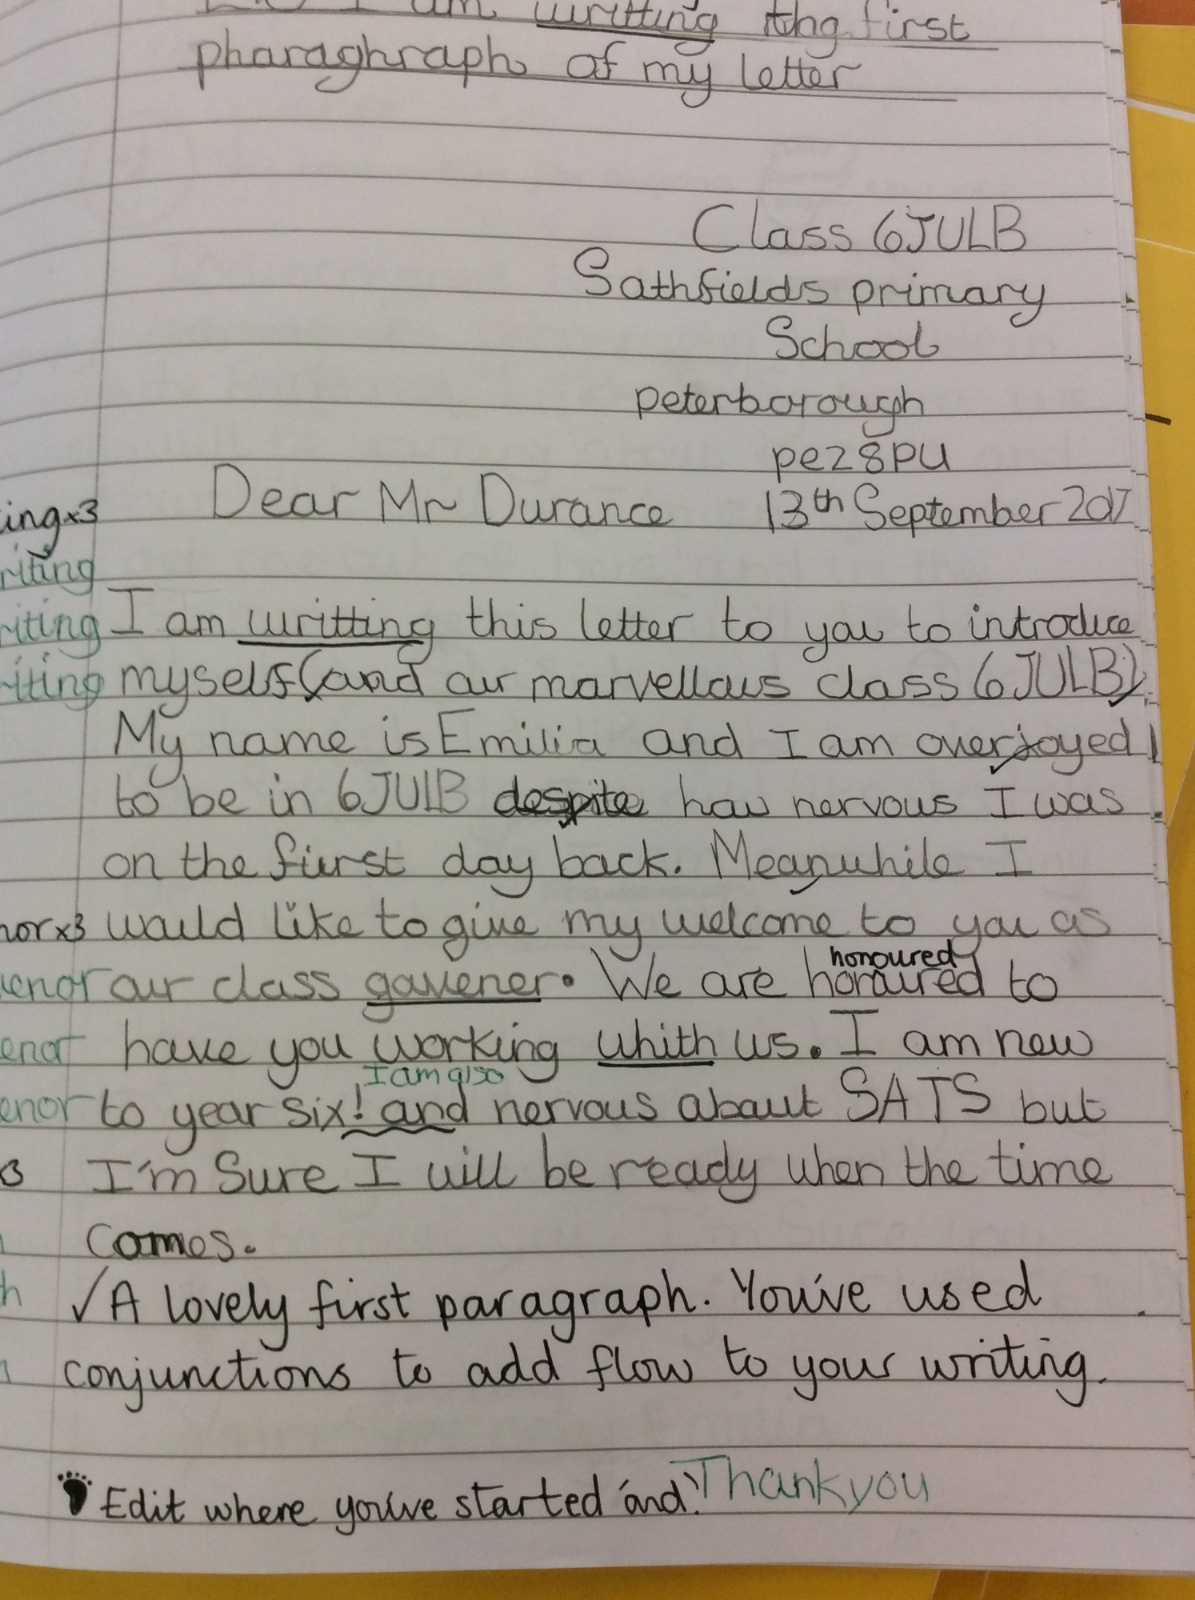 I am writting thg first
pharaghraph of my letter
Class 6JULB
Sathfields primary
School
peterborough
pe28PU
ing x3 Dear Mr Durance 13th September 2017
riting
riting I am writting this letter to you to introduce
riting myself (and our marvellous class 6JULB).
My name is Emilia and I am overjoyed
to be in 6JULB despite how nervous I was
on the fiurst day back. Meanwhile I
nor x3 would like to give my welcome to you as
enor our class gavener. We are honoured to
honoured
enor have you working whith us. I am new
I am also
enor to year six! and nervous about SATS but
3 I'm Sure I will be ready when the time
comes.
h ✓ A lovely first paragraph. You've used
conjunctions to add flow to your writing.
Edit where you've started 'and'. Thankyou